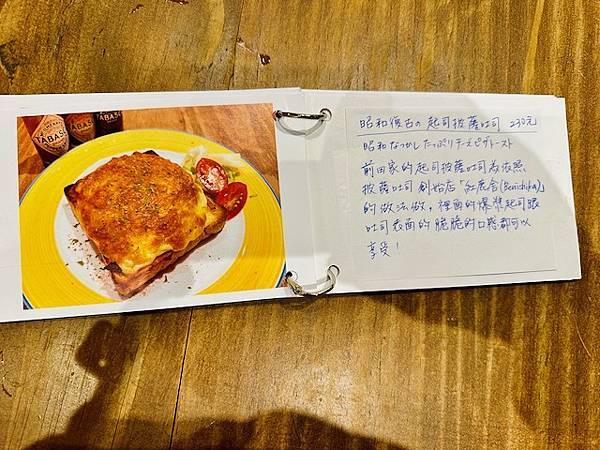 TABASCO
TABASCO
昭和復古の起司披薩吐司 230元
昭和なつかしたっぷりチーズピザトースト
前田家的起司披薩吐司為依照
披薩吐司創始店「紅鹿舍(Benishika)」
的做法做，裡面的爆漿起司跟
吐司表面的脆脆的口感都可以
享受！